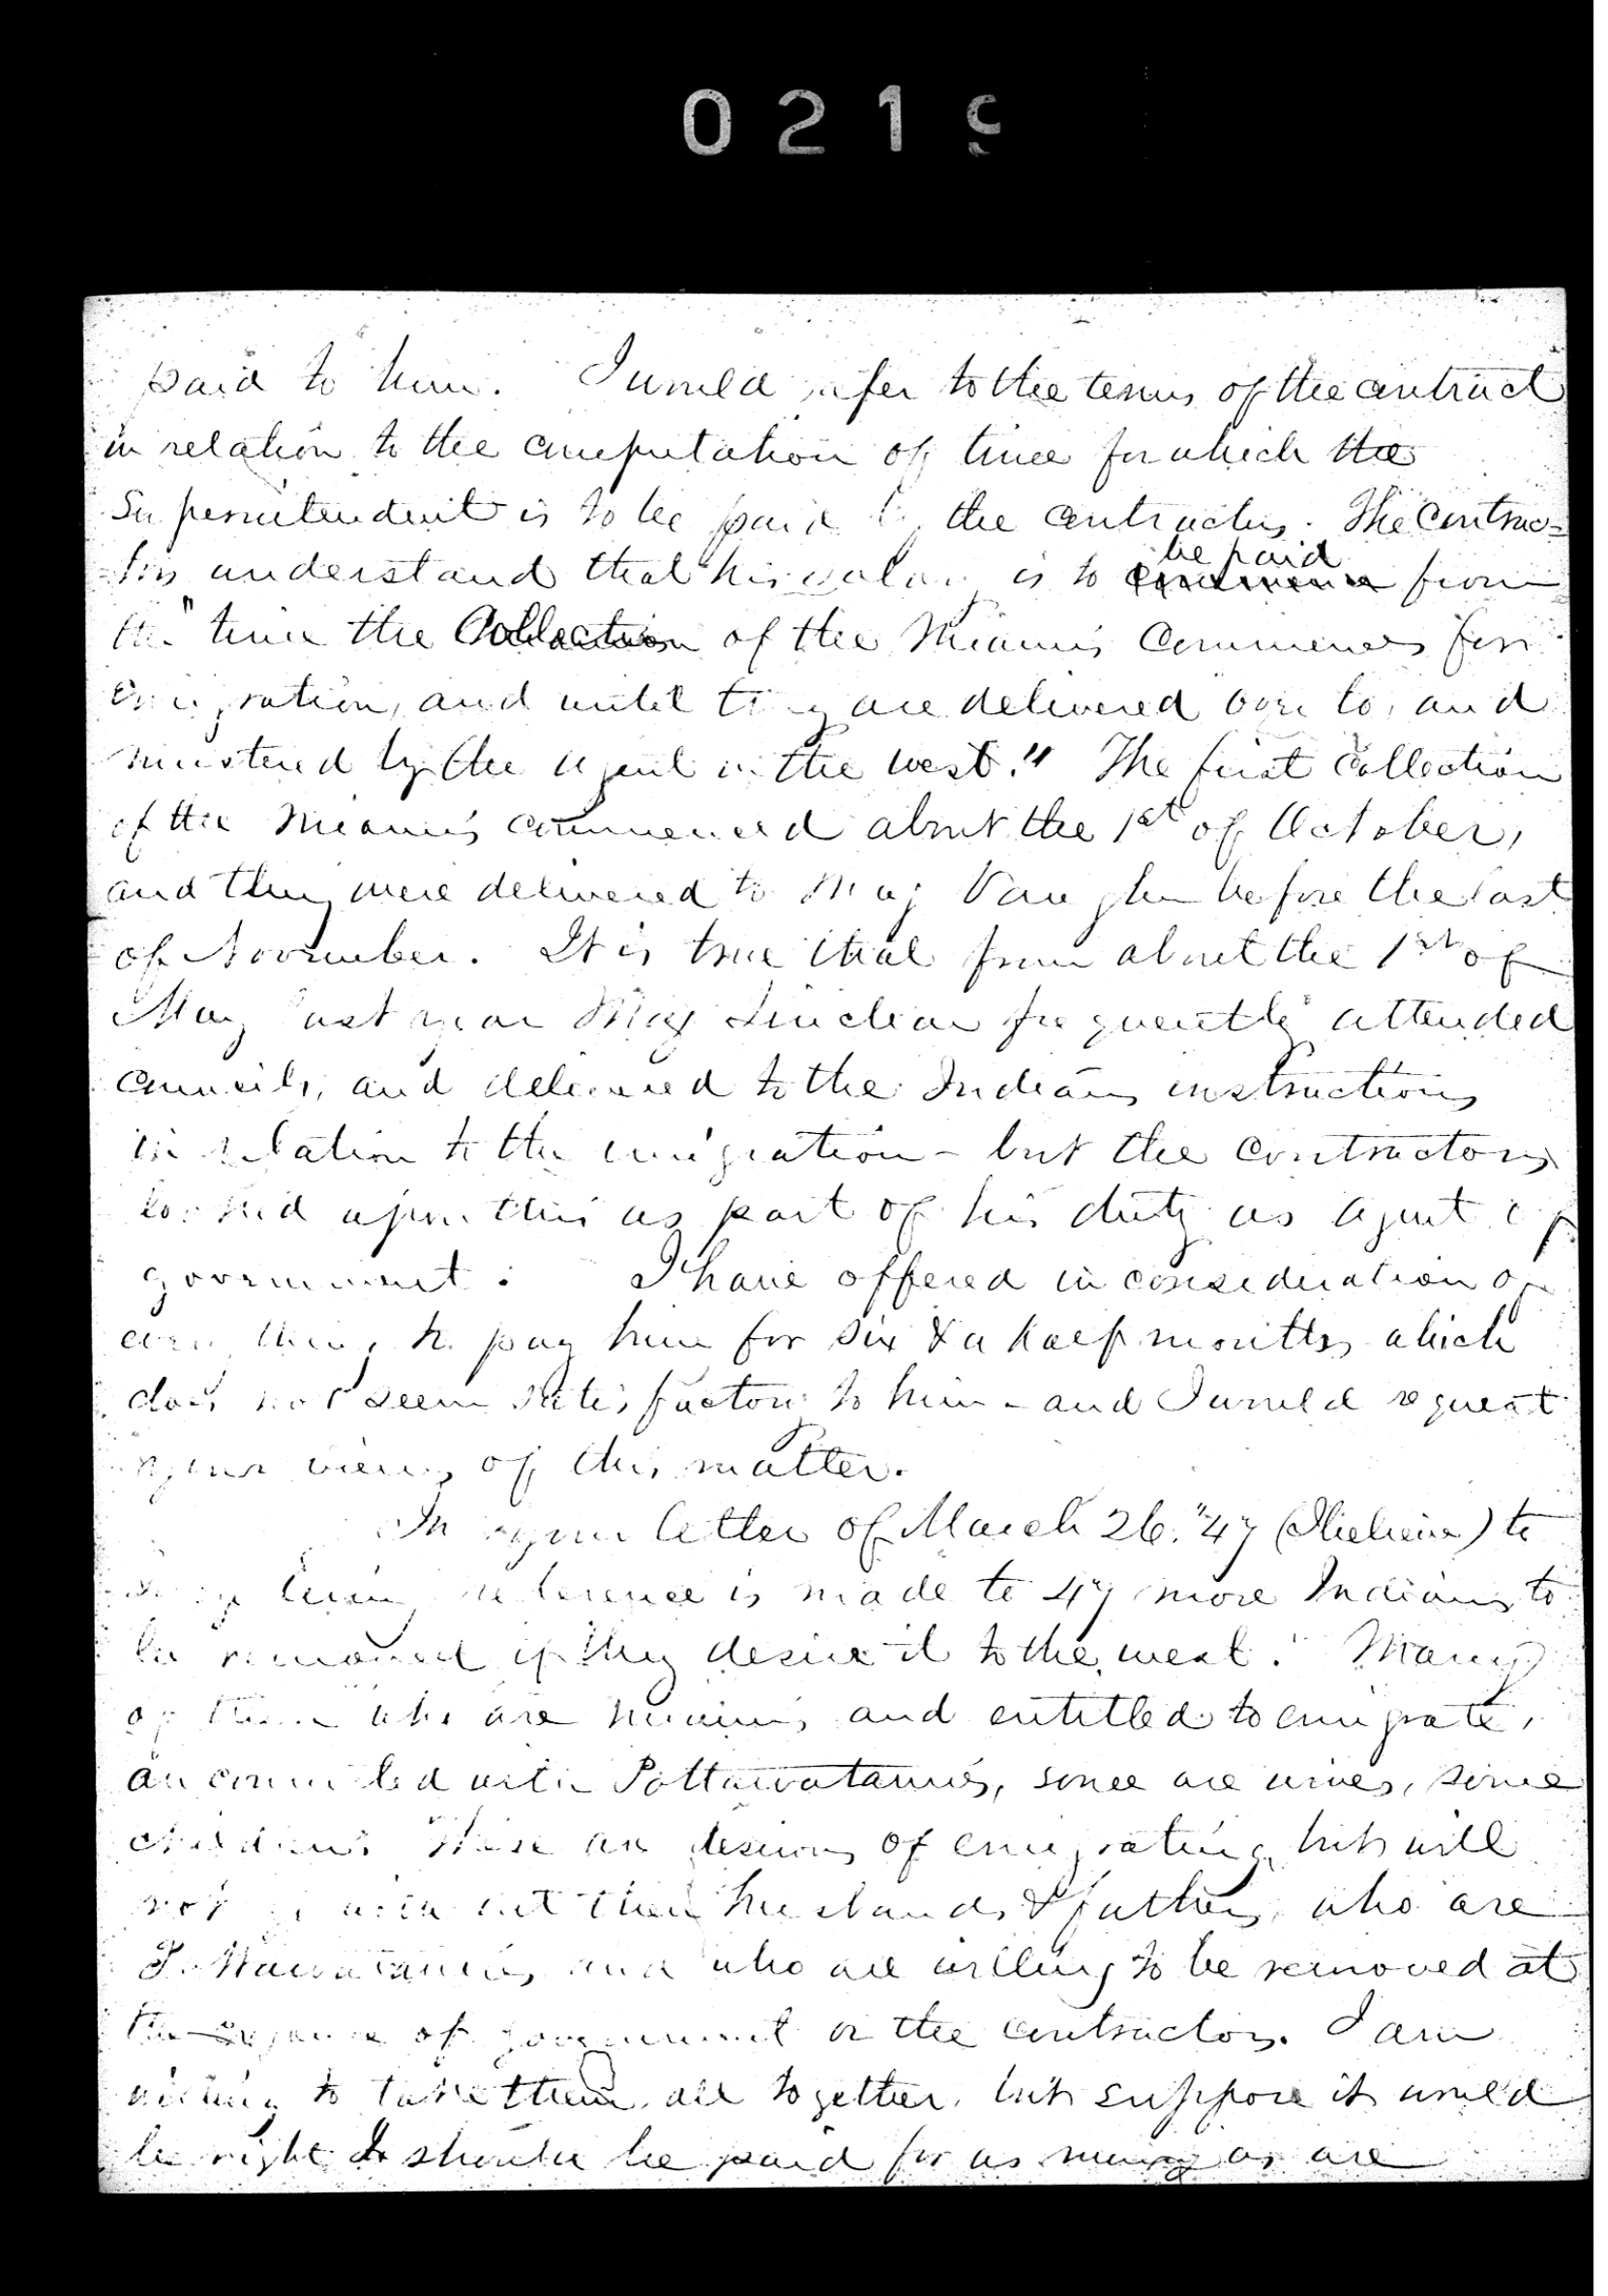 0219
paid to him. I would refer to the terms of the contract
in relation to the computation of time for which the
Superintendent is to be paid by the contractors. The Contrac=
=tors understand that his salary is to be paid from
the "time the Collection of the Miamis Commences for
emigration, and until they are delivered over to, and
mustered by the agent in the west." The first Collection
of the Miamis commenced about the 1st of October,
and they were delivered to Maj Vaughn before the last
of November. It is true that from about the 1st of
May last year Maj Sinclear frequently attended
Councils, and delivered to the Indians instructions
in relation to the emigration - but the contractors
looked upon this as part of his duty as agent of
government. I have offered in consideration of
every thing, to pay him for six & a half months which
does not seem satisfactory to him - and I would request
your views of this matter.
In your letter of March 26. "47 ( ) to
reference is made to 47 more Indians to
be removed if they desire it to the west. Many
of them who are Miamis, and entitled to emigrate,
are connected with Pottawatamies, some are wives, some
children. These are desirous of emigrating but will
not go without their husbands & fathers, who are
Pottawatamies, and who are willing to be removed at
the expense of government or the contractors. I am
willing to take them all together, but suppose it would
be right I should be paid for as many as are